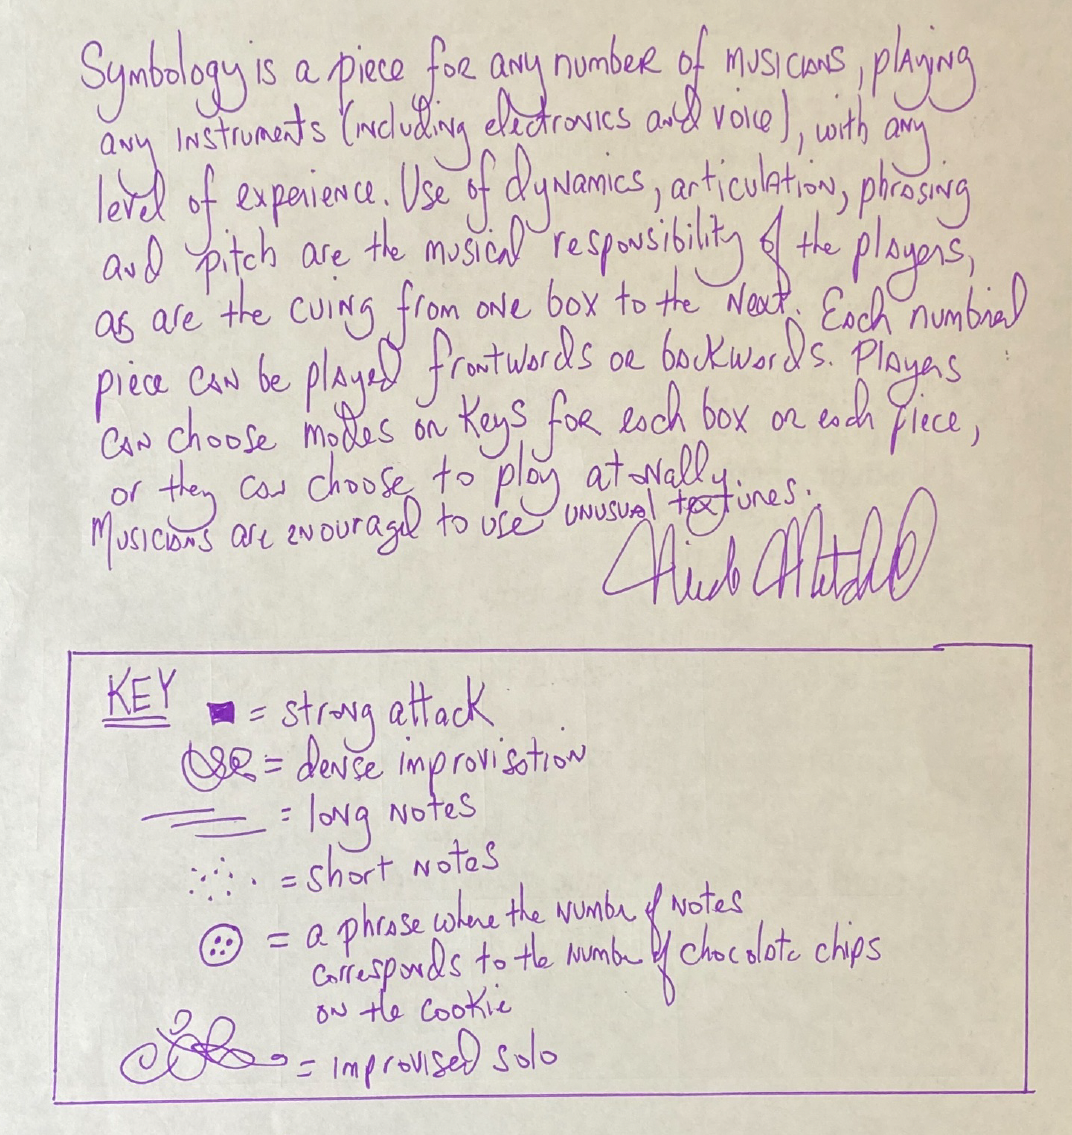 Symbology is a piece for any number of musicians, playing
any instruments (including electronics and voice), with any
level of experience. Use of dynamics, articulation, phrasing
and pitch are the musical responsibility of the players,
as are the cuing from one box to the next. Each numbred
piece can be played frontwords or backwords. Players
can choose modes or keys for each box or each piece,
or they can choose to play atonally.
Musicians are encouraged to use unusual textures.
Nicole Mitchell
KEY
= strong attack
= dense improvisation
= long notes
= short notes
= a phrase where the number of notes
corresponds to the number of chocolate chips
on the cookie
= improvised solo